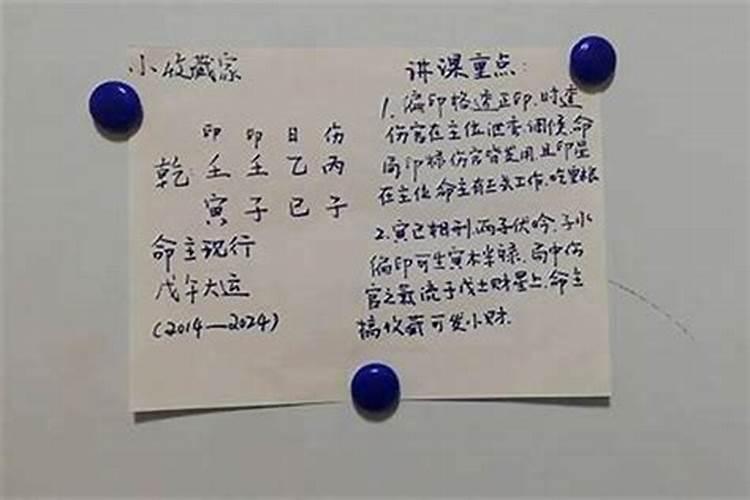 小收藏家
印 印 日 伤
乾 壬 壬 乙 丙
寅 子 巳 子
命主现行
戊午大运
(2014—2024)
讲课重点:
1. 偏印格透正印,时透
伤官在主位泄秀、调候,命
局印 伤官皆 用,且印星
在主位,命主有正式工作,吃
2. 寅巳相刑,两子伏吟,子水
偏印可生寅木半禄,局中伤
官之 流于戊土财星上,命主
搞收藏可发小财.